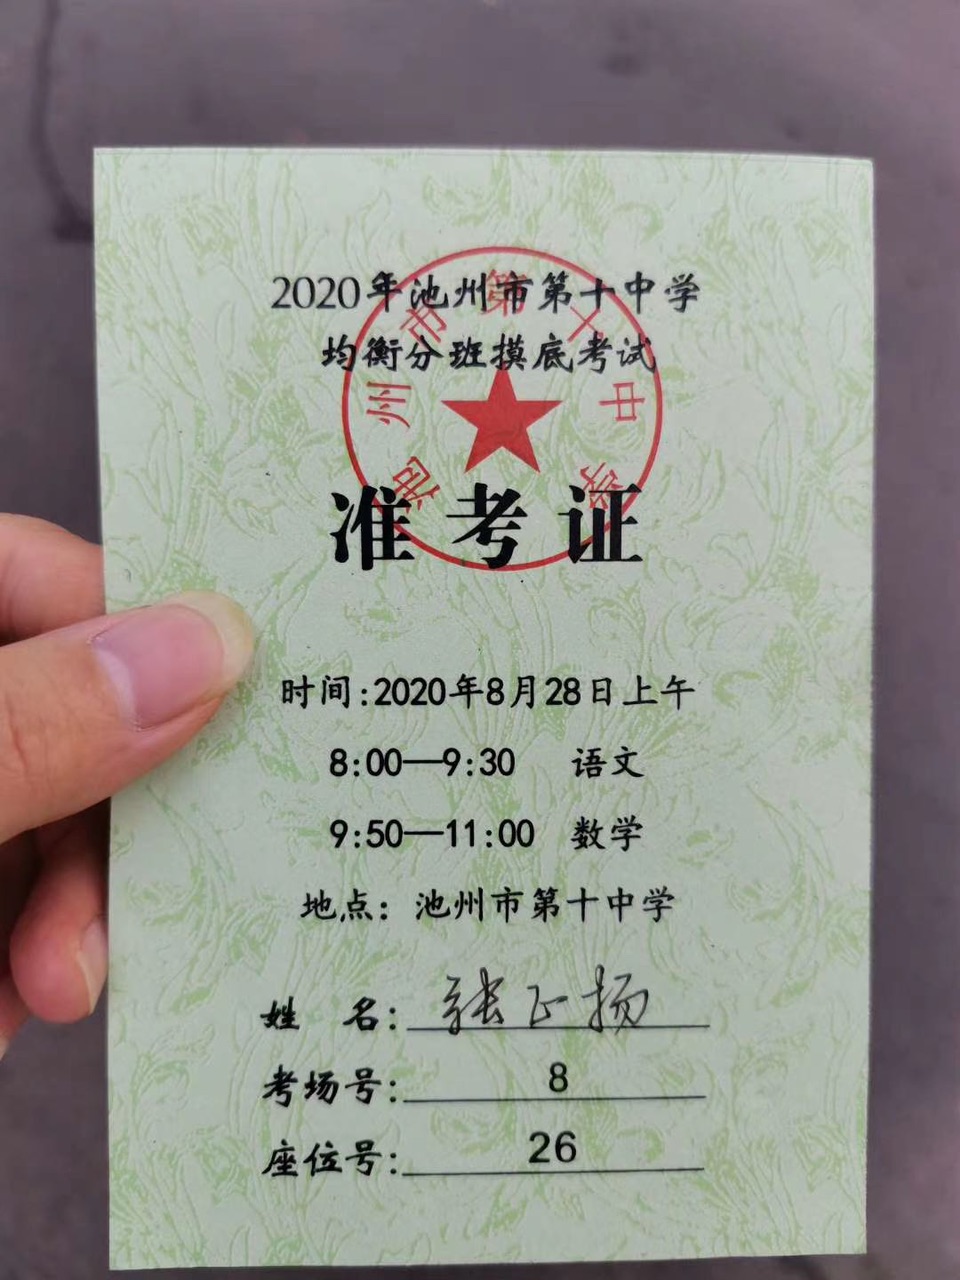 2020年池州市第十中学
均衡分班摸底考试
池州市第十中学
准考证
时间:2020年8月28日上午
8:00—9:30 语文
9:50—11:00 数学
地点：池州市第十中学
姓 名:张正扬
考场号:8
座位号:26